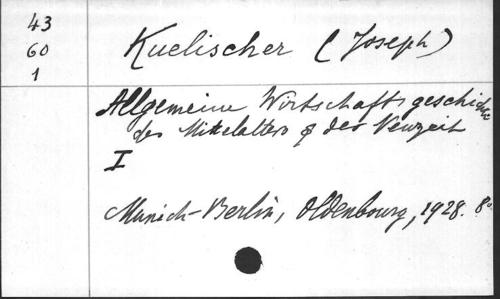 43
60
1
Kuelischer (Joseph)
Allgemeine Wirtschaftsgeschichte
des Mittelalters & der Neuzeit
I
Munich-Berlin, Oldenbourg, 1928. 8°